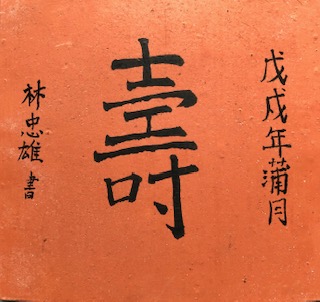 戊戌年蒲月
壽
林忠雄書